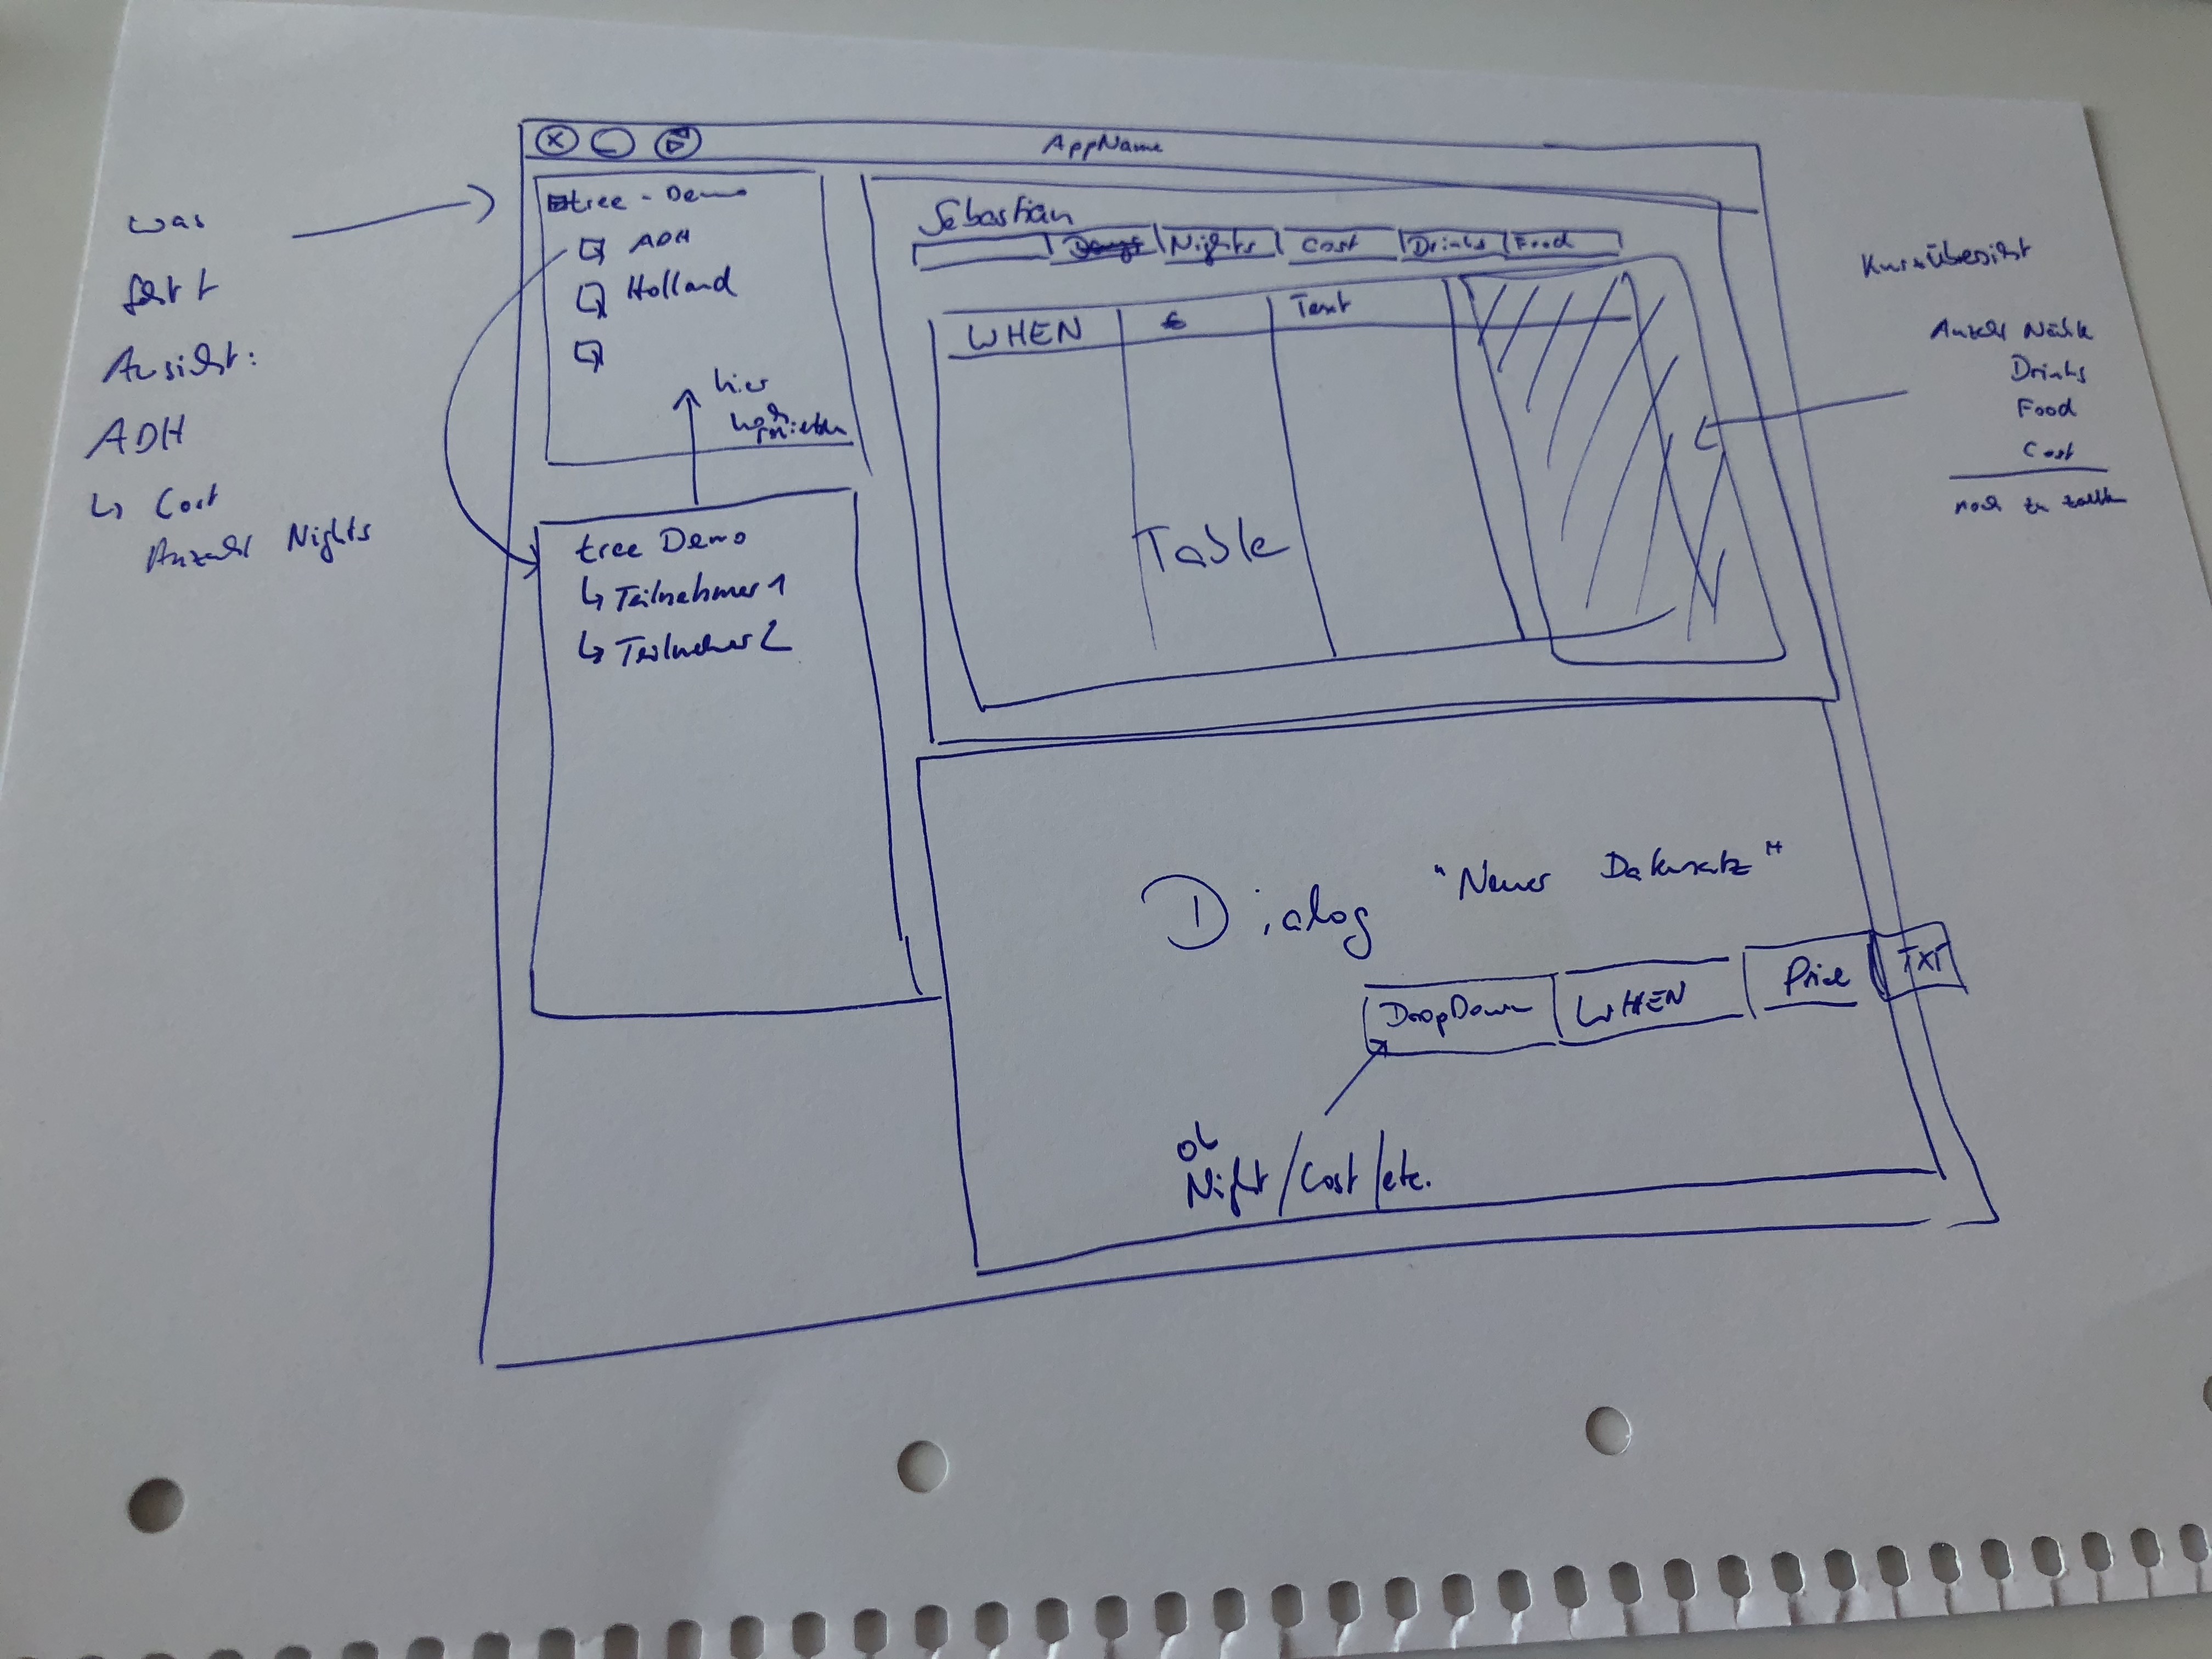 AppName
was
fehlt
Ansicht:
ADH
↳ Cost
Anzahl Nights
tree-Demo
ADH
Holland
hier
noch
tree Demo
↳ Teilnehmer 1
↳ Teilnehmer 2
Sebastian
Nights
Cost
Drinks
Food
WHEN
€
Text
Table
Kurzübersicht
Anzahl Nächte
Drinks
Food
Cost
noch zu zahlen
Dialog "Neuer Datensatz"
DropDown
WHEN
Price
TXT
ob
Night/Cost/etc.